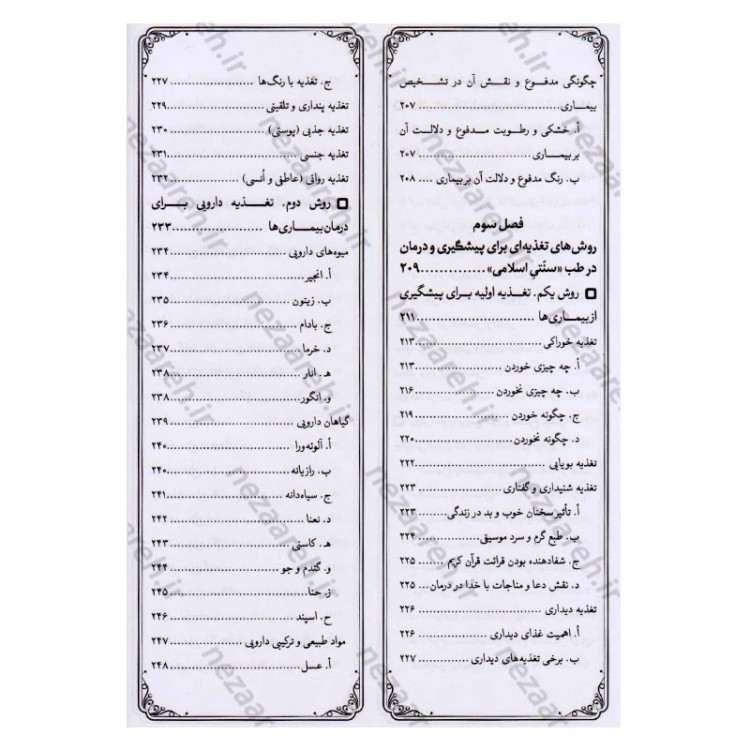 چگونگی مدفوع و نقش آن در تشخیص
بیماری ........ ۲۰۷
أ. خشکی و رطوبت مدفوع و دلالت آن
بر بیماری ........ ۲۰۷
ب. رنگ مدفوع و دلالت آن بر بیماری .... ۲۰۸
فصل سوم
روش‌های تغذیه‌ای برای پیشگیری و درمان
در طب «سنّتیِ اسلامی» ........ ۲۰۹
روش یکم. تغذیه اولیه برای پیشگیری
از بیماری‌ها ........ ۲۱۱
تغذیه خوراکی ........ ۲۱۳
أ. چه چیزی خوردن ........ ۲۱۳
ب. چه چیزی نخوردن ........ ۲۱۶
ج. چگونه خوردن ........ ۲۱۹
د. چگونه نخوردن ........ ۲۲۰
تغذیه بویایی ........ ۲۲۲
تغذیه شنیداری و گفتاری ........ ۲۲۳
أ. تأثیر سخنان خوب و بد در زندگی ........ ۲۲۳
ب. طبع گرم و سرد موسیقی ........ ۲۲۴
ج. شفادهنده بودن قرائت قرآن کریم ... ۲۲۵
د. نقش دعا و مناجات با خدا در درمان ... ۲۲۵
تغذیه دیداری ........ ۲۲۶
أ. اهمیت غذای دیداری ........ ۲۲۶
ب. برخی تغذیه‌های دیداری ........ ۲۲۷
ج. تغذیه با رنگ‌ها ........ ۲۲۷
تغذیه پنداری و تلقینی ........ ۲۲۹
تغذیه جذبی (پوستی) ........ ۲۳۰
تغذیه جنسی ........ ۲۳۱
تغذیه روانی (عاطفی و اُنسی) ........ ۲۳۲
روش دوم. تغذیه دارویی برای
درمان بیماری‌ها ........ ۲۳۳
میوه‌های دارویی ........ ۲۳۴
أ. انجیر ........ ۲۳۴
ب. زیتون ........ ۲۳۵
ج. بادام ........ ۲۳۶
د. خرما ........ ۲۳۷
هـ. انار ........ ۲۳۸
و. انگور ........ ۲۳۸
گیاهان دارویی ........ ۲۳۹
أ. آلوئه‌ورا ........ ۲۴۰
ب. رازیانه ........ ۲۴۰
ج. سیاه‌دانه ........ ۲۴۱
د. نعنا ........ ۲۴۲
هـ. کاسنی ........ ۲۴۳
و. گندم و جو ........ ۲۴۴
ز. حنا ........ ۲۴۵
ح. اسپند ........ ۲۴۶
مواد طبیعی و ترکیبی دارویی ........ ۲۴۷
أ. عسل ........ ۲۴۸
nezaareh.ir